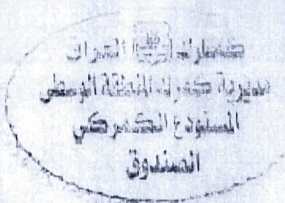 كمارك العراق
مديرية كمرك المنطقة الوسطى
المستودع الكمركي
الصندوق